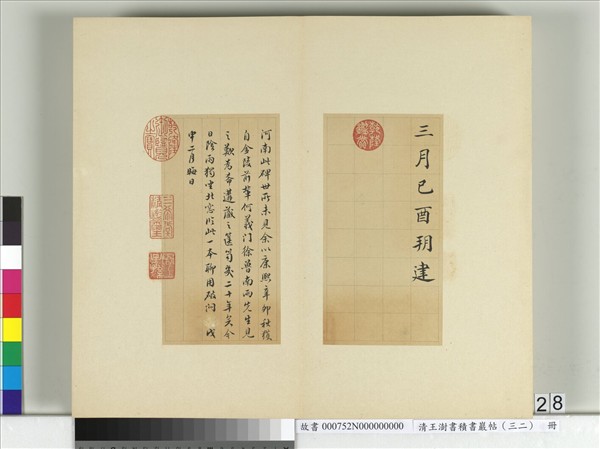 三月己酉朔建
河南此碑世所未見余以康熙辛卯秋獲
自金陵前輩何義門徐魯南兩先生見
之歎為希遘藏之篋笥矣二十年矣今
日陰雨獨坐北窗臨此一本聊用破悶 戊
申二月晦日
28
故書 000752N000000000 清王澍書積書巖帖(三二) 冊